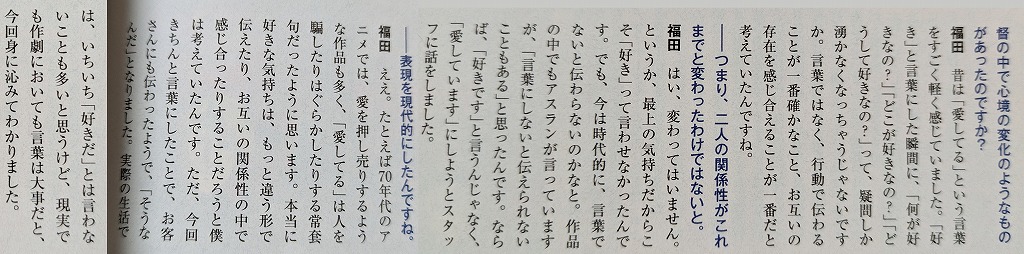 督の中で心境の変化のようなもの
があったのですか？
福田　昔は「愛してる」という言葉
をすごく軽く感じていました。「好
き」と言葉にした瞬間に、「何が好
きなの？」「どこが好きなの？」「ど
うして好きなの？」って、疑問しか
湧かなくなっちゃうじゃないです
か。言葉ではなく、行動で伝わる
ことが一番確かなこと、お互いの
存在を感じ合えることが一番だと
考えていたんですね。
――つまり、二人の関係性がこれ
までと変わったわけではないと。
福田　はい、変わってはいません。
というか、最上の気持ちだからこ
そ「好き」って言わせなかったんで
す。でも、今は時代的に、言葉で
ないと伝わらないのかなと。作品
の中でもアスランが言っています
が、「言葉にしないと伝えられない
こともある」と思ったんです。なら
ば、「好きです」と言うんじゃなく、
「愛しています」にしようとスタッ
フに話をしました。
――表現を現代的にしたんですね。
福田　ええ。たとえば70年代のア
ニメでは、愛を押し売りするよう
な作品も多く、「愛してる」は人を
騙したりはぐらかしたりする常套
句だったように思います。本当に
好きな気持ちは、もっと違う形で
伝えたり、お互いの関係性の中で
感じ合ったりすることだろうと僕
は考えていたんです。ただ、今回
きちんと言葉にしたことで、お客
さんにも伝わったようで、「そうな
んだ」となりました。実際の生活で
は、いちいち「好きだ」とは言わな
いことも多いと思うけど、現実で
も作劇においても言葉は大事だと、
今回身に沁みてわかりました。